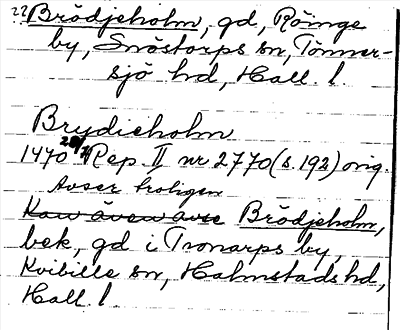 22 Brödjeholm, gd, Röinge
by, Snöstorps sn, Tönner-
sjö hd, Hall. l.
Brydieholm
1470 28/7 Rep. II nr 2770 (s. 192) orig.
Avser troligen
Kan även avse Brödjeholm,
bek, gd i Tronarps by,
Kvibille sn, Halmstads hd,
Hall. l.